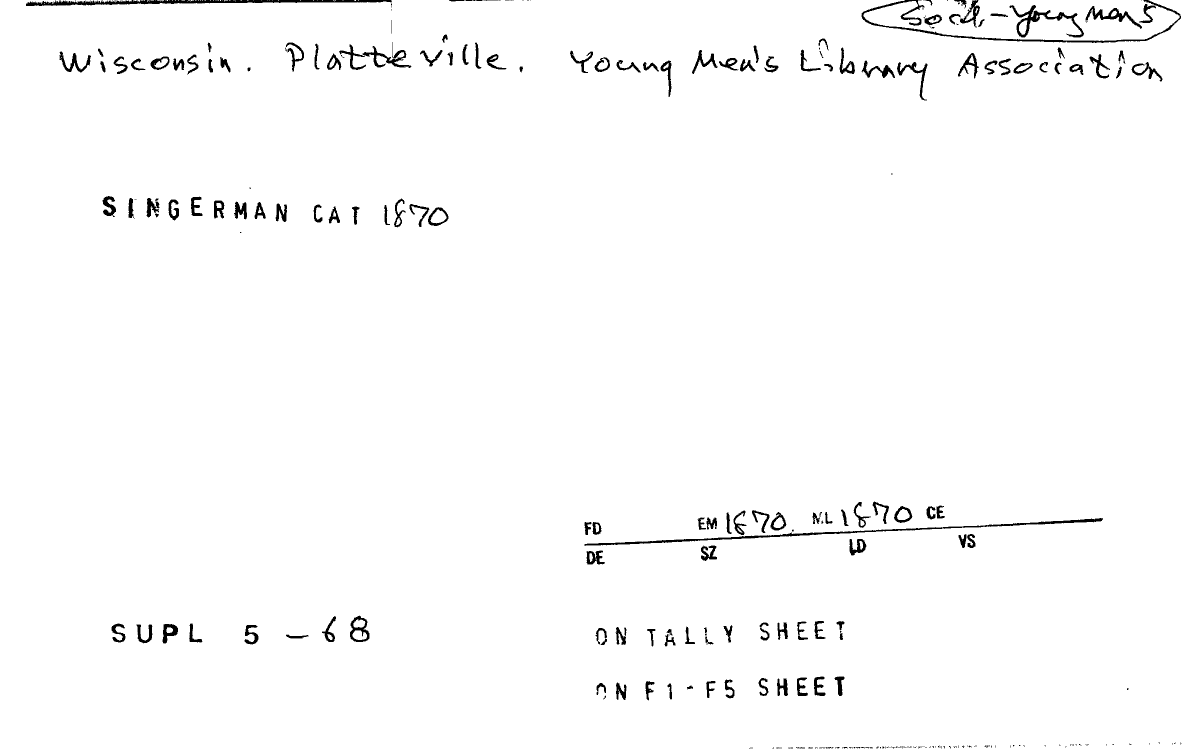 Socl-Young Mens
Wisconsin. Platteville. Young Men's Library Association
SINGERMAN CAT 1870
FD EM 1870 ML 1870 CE
DE SZ LD VS
SUPL 5-68
ON TALLY SHEET
ON F1-F5 SHEET